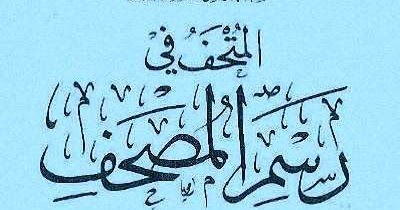 المُتْحَفُ في
رَسْمِ المُصْحَفِ